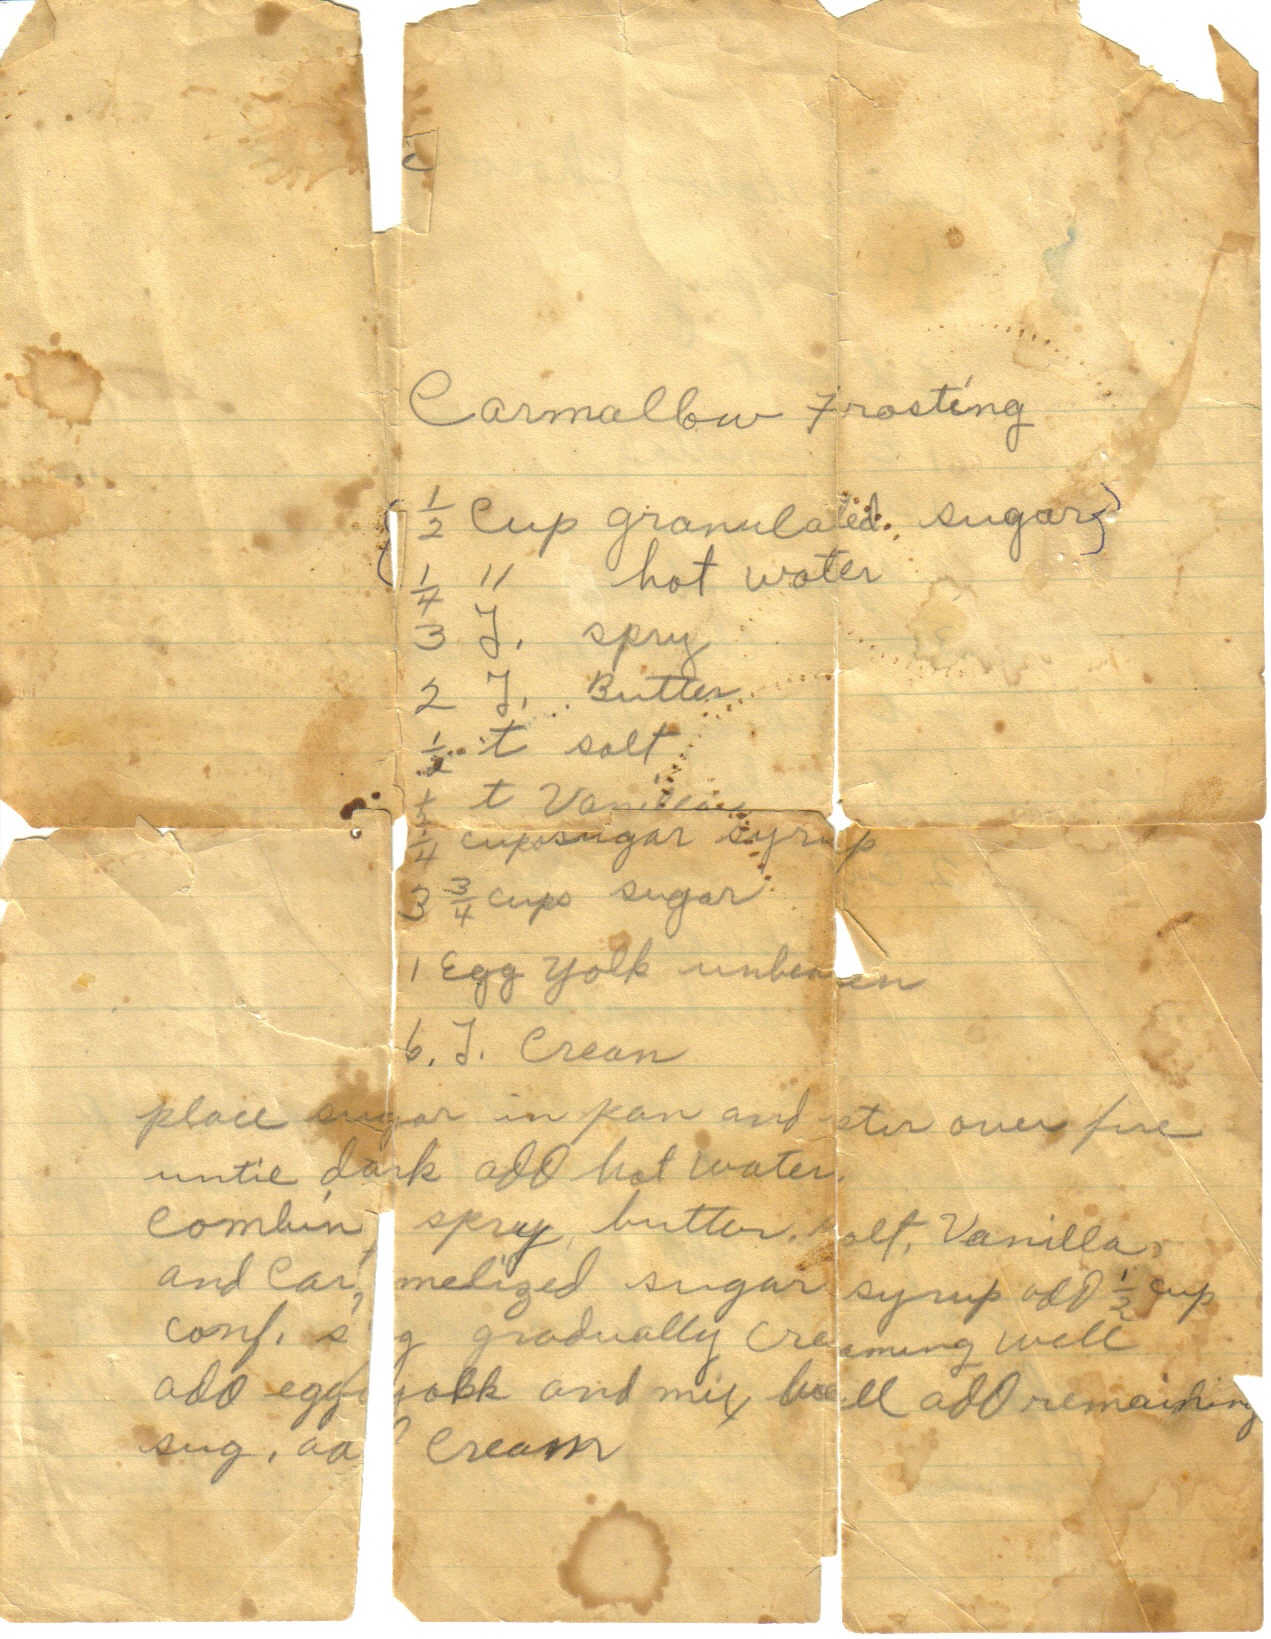 Carmallow Frosting
{ 1/2 Cup granulated sugar }
1/4 " hot water
3 T. spry
2 T. Butter
1/2 t salt
t Vanilla
1/4 cup sugar syrup
3 3/4 cups sugar
1 Egg yolk unbeaten
6. T. Cream
place sugar in pan and stir over fire
until dark add hot water.
Combin spry, butter, salt, Vanilla,
and Carmelized sugar syrup add 1/2 cup
conf. sug gradually creaming well
add egg yolk and mix well add remaining
sug. add Cream